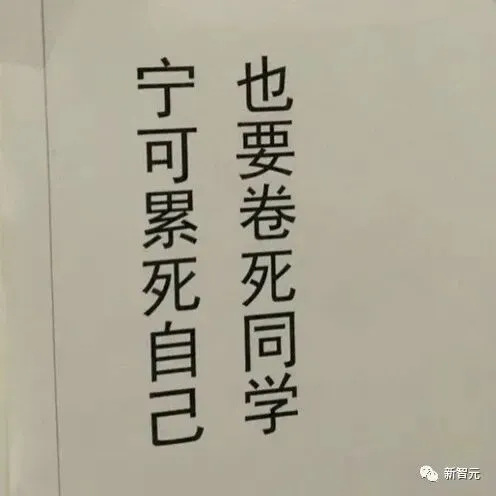 宁可累死自己
也要卷死同学
新智元